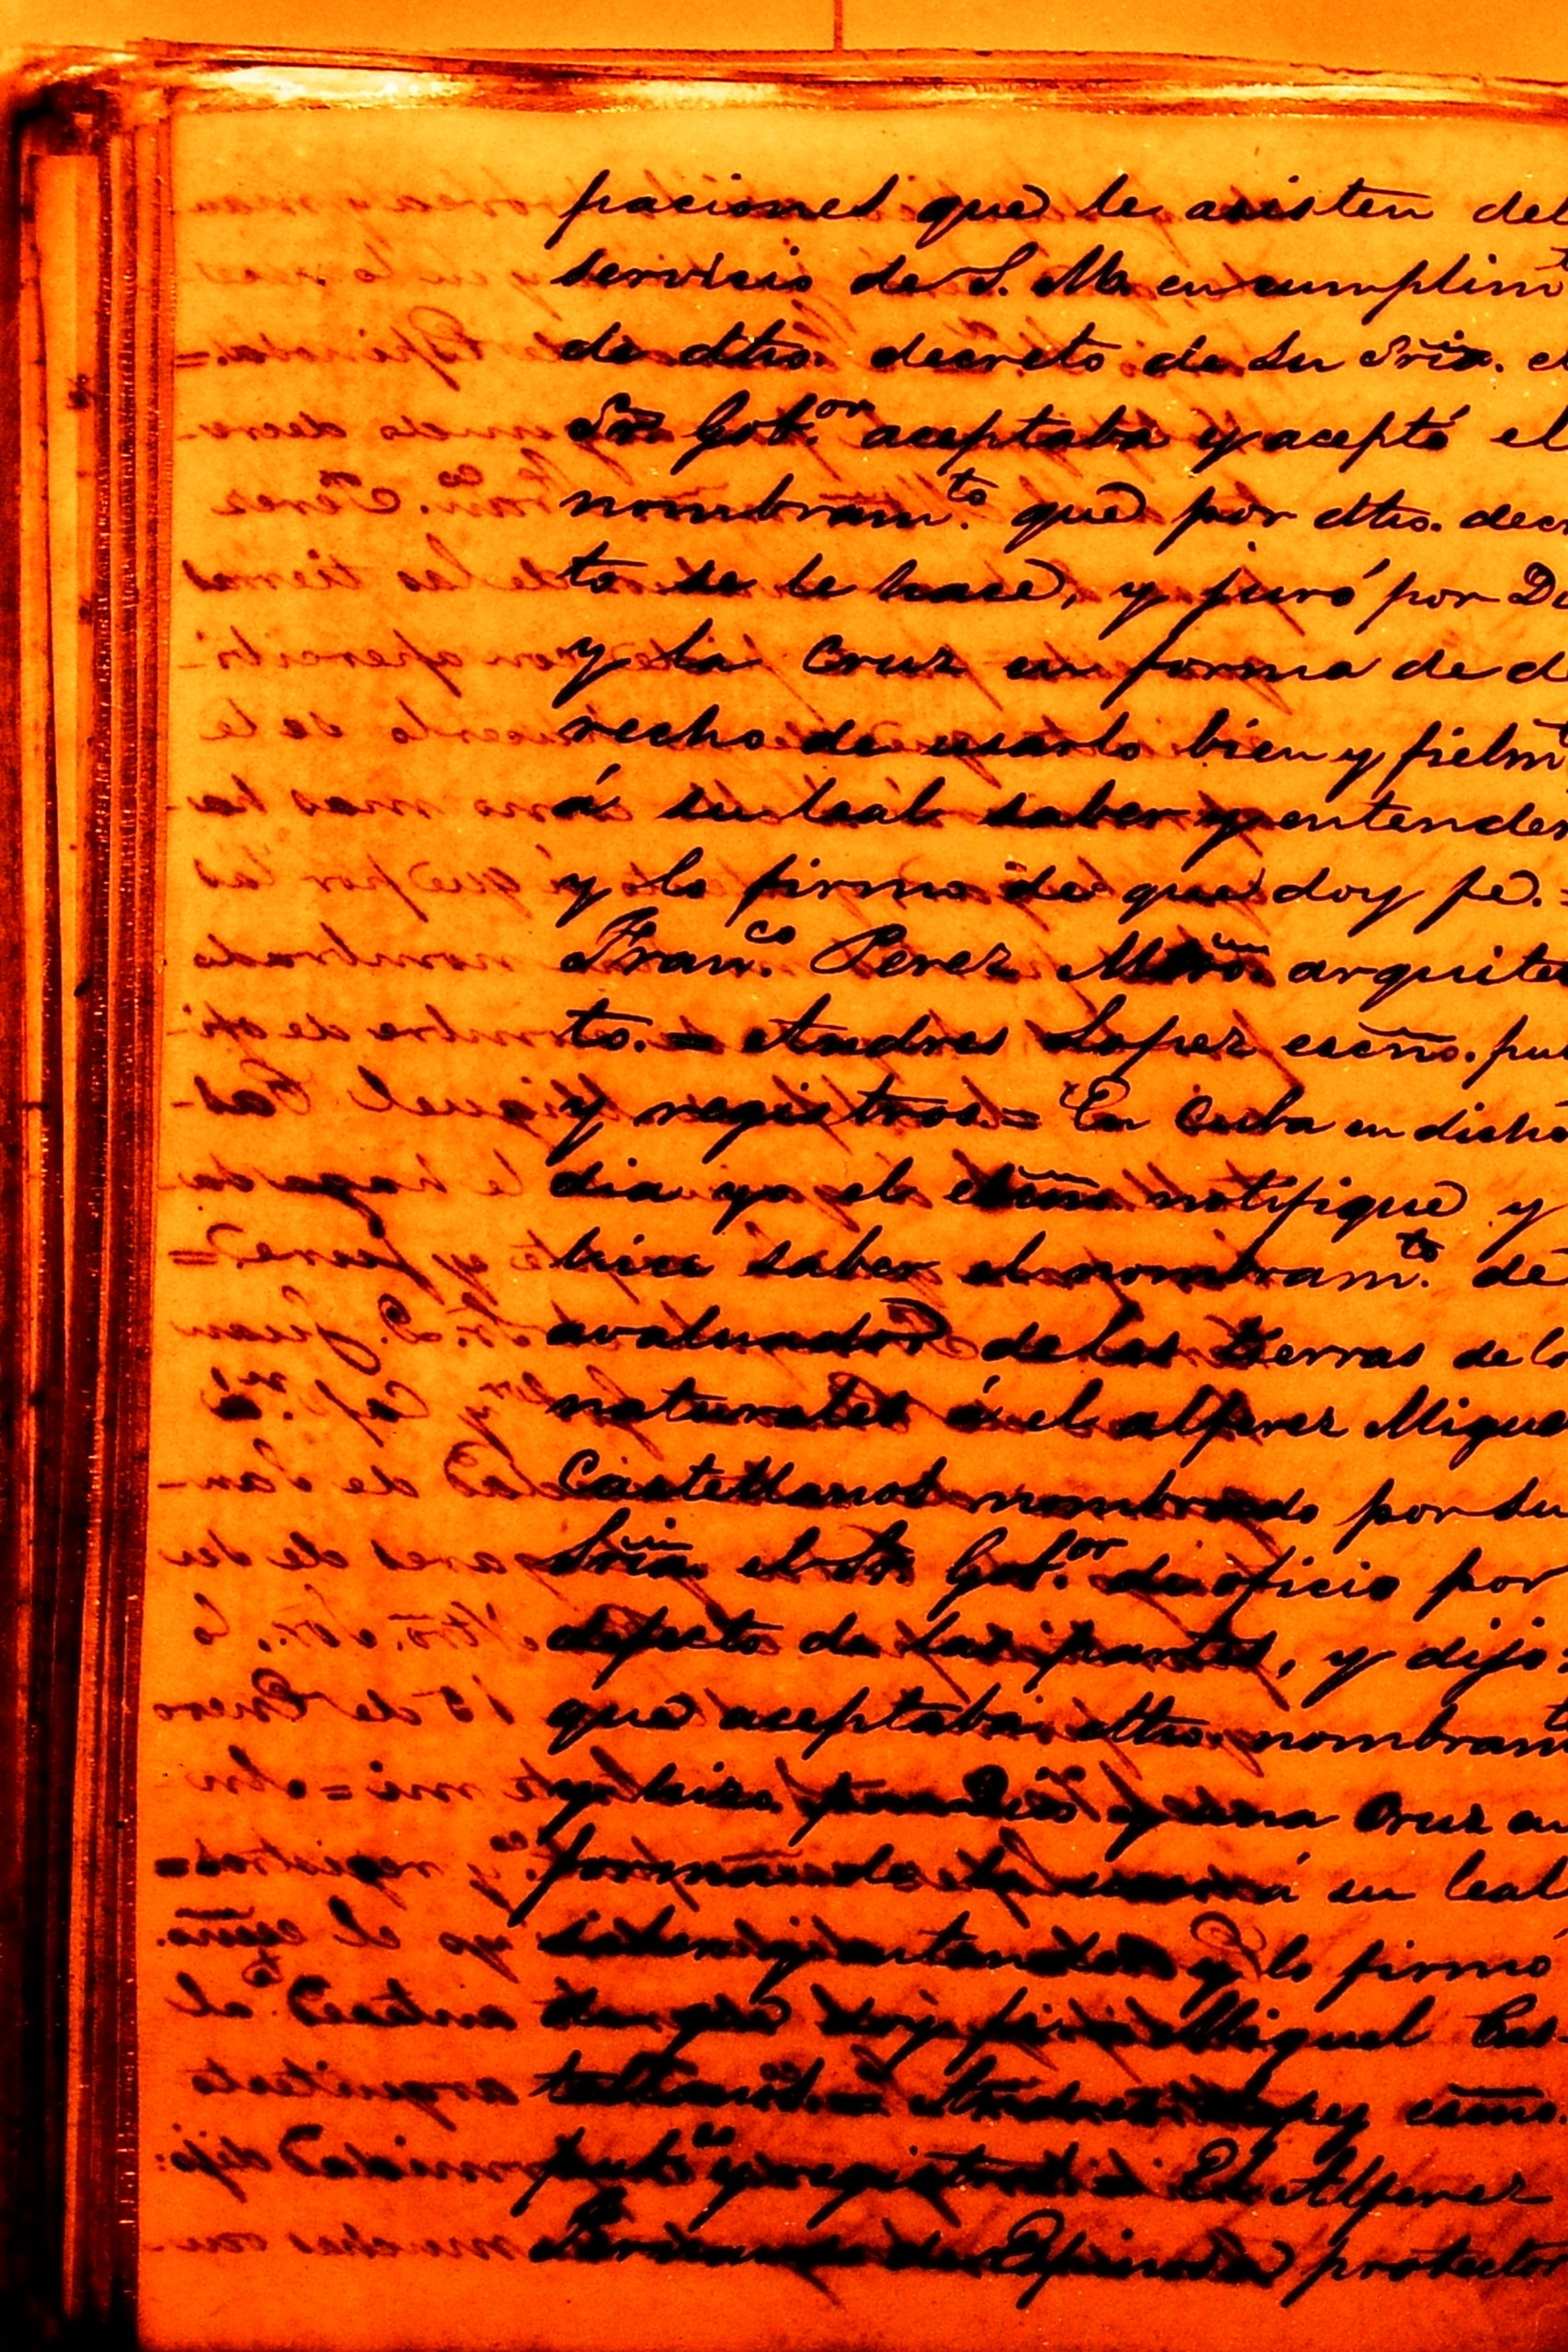 paciones que le asisten del
servicio de S. M. en cumplimto
de dho. decreto de Su Sria. el
Sr. Gobor. aceptaba y aceptó el
nombramto. que por dho. decre
to se le hace, y juró por Di
y la Cruz en forma de de
recho de usarlo bien y fielmt
á su leal saber y entender
y lo firmo de que doy fe. =
Franco. Perez arquitec
to. = Andres Lopez escño. pu
y registros. = En Cuba en dicho
dia yo el escño notifique y
hice saber el nombramto. de
avaluador de las tierras de lo
naturales á el alferez Miguel
Castellanos nombrado por Su
Sria el Sr. Gobor. de oficio por
defecto de las partes, y dijo:
que aceptaba dho. nombramto
y hizo por Dios y una Cruz en
forma de á su leal
saber y entender y lo firmó
de que doy fe = Miguel Cas-
tellanos. = Andres Lopez escño.
pubco. y registros = El Alferez
de Espinosa protector